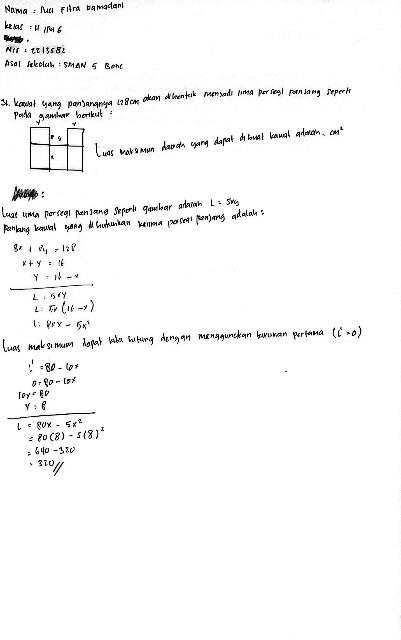 Nama : Fitra Ramadani
Kelas : 11 IPA 6
NIS : 2213582
Asal sekolah : SMAN 5 Bone
31. Kawat yang panjangnya 128 cm akan dibentuk menjadi lima persegi panjang seperti
pada gambar berikut :
Luas maksimum daerah yang dapat dibuat kawat adalah.. cm²
Luas lima persegi panjang seperti gambar adalah L = 5xy
Panjang kawat yang dibutuhkan kelima persegi panjang adalah :
8x + 8y = 128
x + y = 16
y = 16 - x
L = 5xy
L = 5x (16 - x)
L = 80x - 5x²
Luas maksimum dapat kita hitung dengan menggunakan turunan pertama (L' = 0)
L' = 80 - 10x
0 = 80 - 10x
10x = 80
x = 8
L = 80x - 5x²
= 80 (8) - 5 (8)²
= 640 - 320
= 320 //